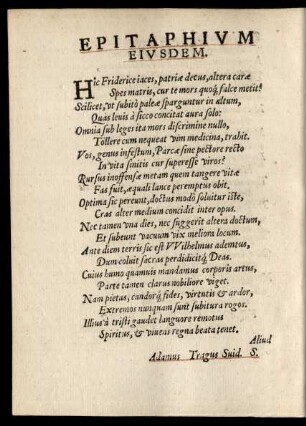 EPITAPHIVM
EIVSDEM.
Hic Friderice iaces, patriæ decus, altera caræ
Spes matris, cur te mors quoq́, falce metit?
Scilicet, vt subitò paleæ sparguntur in altum,
Quas leuis à sicco concitat aura solo:
Omnia sub leges ita mors discrimine nullo,
Tollere cum nequeat vim medicina, trahit.
Vos, genus infestum, Parcæ sine pectore recto
In vita sinitis cur superesse viros?
Rursus inoffensæ metam quem tangere vitæ
Fas fuit, æquali lance peremptus obit.
Optima sic pereunt, doctus modò soluitur iste,
Cras alter medium concidit inter opus.
Nec tamen vna dies, nec suggerit altera doctum,
Et subeunt vacuum vix meliora locum.
Ante diem terris sic est VVilhelmus ademtus,
Dum coluit sacras perdidicitq́ Deas.
Cuius humo quamuis mandamus corporis artus,
Parte tamen clarus nobiliore viget.
Nam pietas, candorq́, fides, virtutis & ardor,
Extremos nunquam sunt subitura rogos.
Illius à tristi gaudet languore remotus
Spiritus, & viuens regna beata tenet.
Aliud
Adamus Tragus Suid. S.